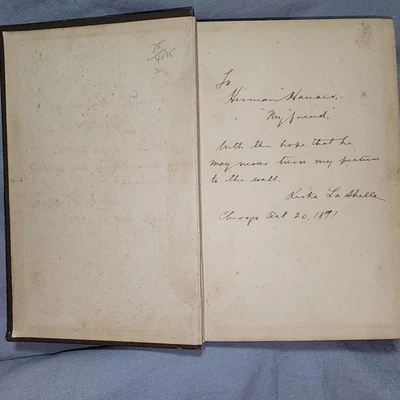 75
To
Herman Hauser,
"My friend,"
With the hope that he
may never turn my picture
to the wall.
Kirke La Shelle
Chicago Oct 20, 1891